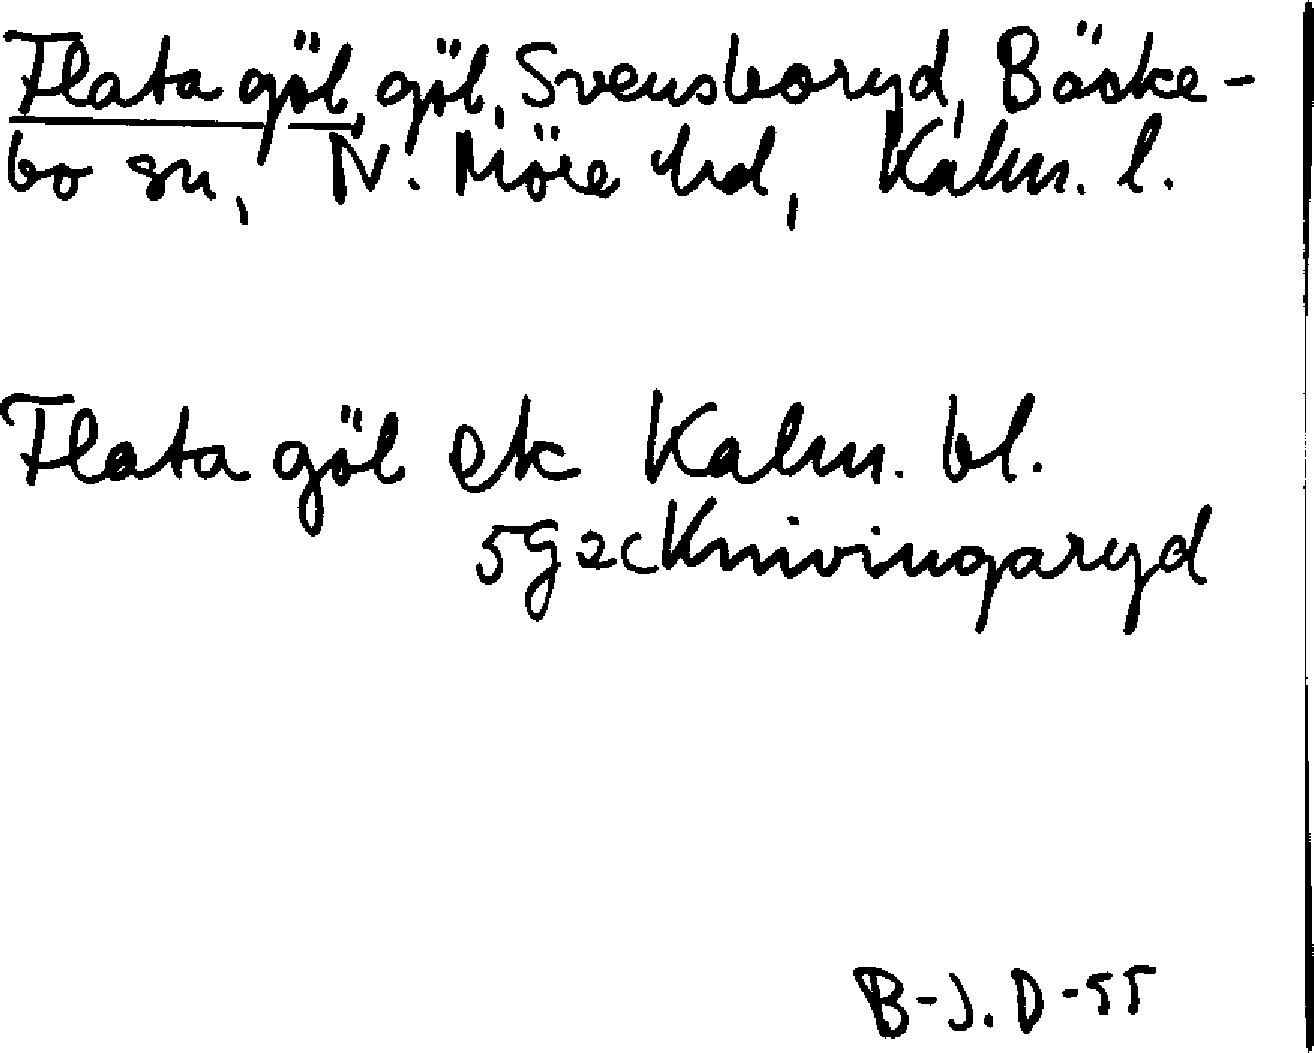 Flata göl, göl, Svensboryd, Bäcke-
bo sn, N. Möre hd, Kalm. l.
Flata göl ek Kalm. bl.
5G2c Knivingaryd
B-J. D-55